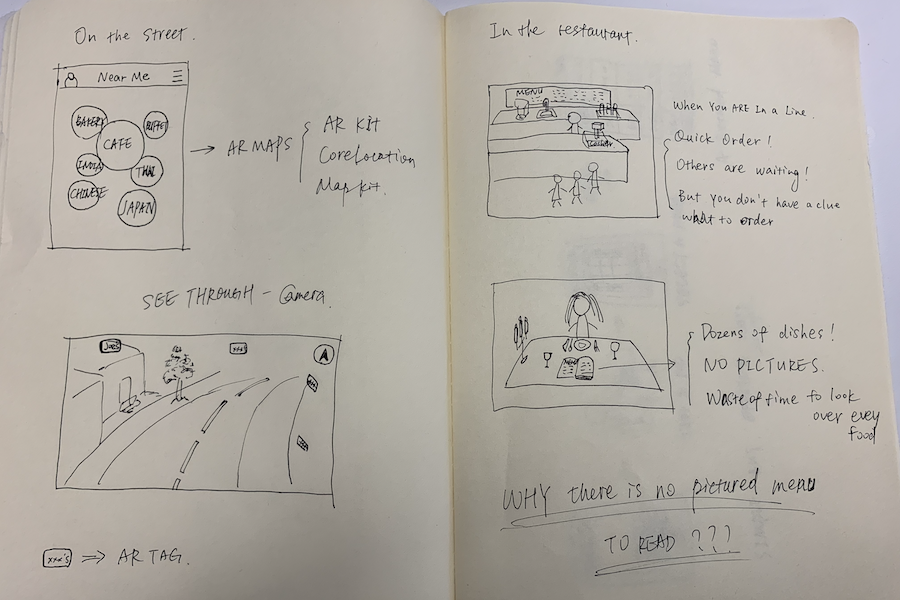 On the Street.
Near Me
BAKERY
BUFFET
CAFE
INDIA
THAI
CHINESE
JAPAN
→ AR MAPS
AR KIT
CoreLocation
Map kit.
SEE THROUGH - Camera.
Joe's
xxx's
A
xxx's ⇒ AR TAG.
In the restaurant.
MENU
Cashier
When You ARE In a Line.
Quick Order!
Others are waiting!
But you don't have a clue
what to order
MENU
Dozens of dishes!
NO PICTURES.
Waste of time to look
over every
food
WHY there is no pictured menu
TO READ ???